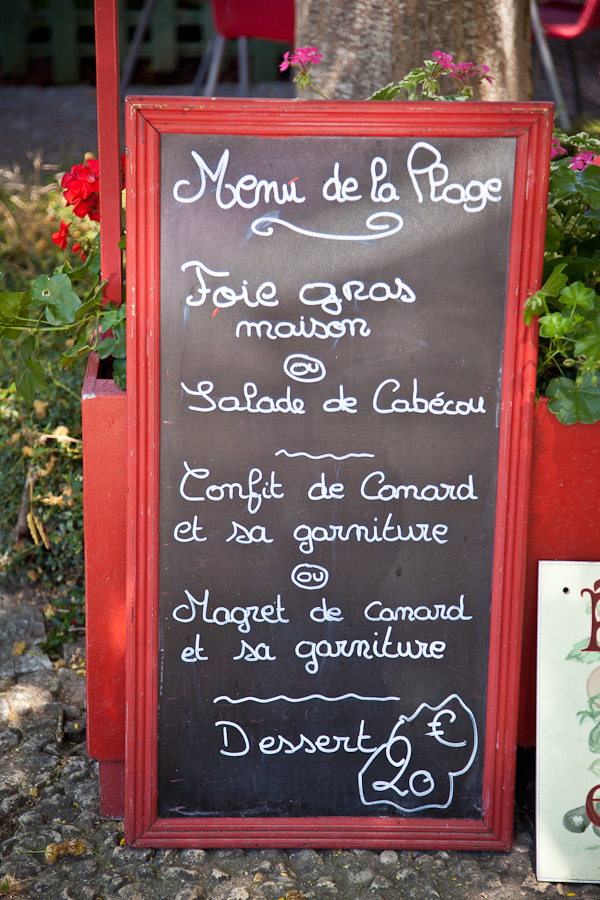 Menu de la Plage
Foie gras
maison
ou
Salade de Cabécou
Confit de Canard
et sa garniture
ou
Magret de canard
et sa garniture
Dessert
€
20